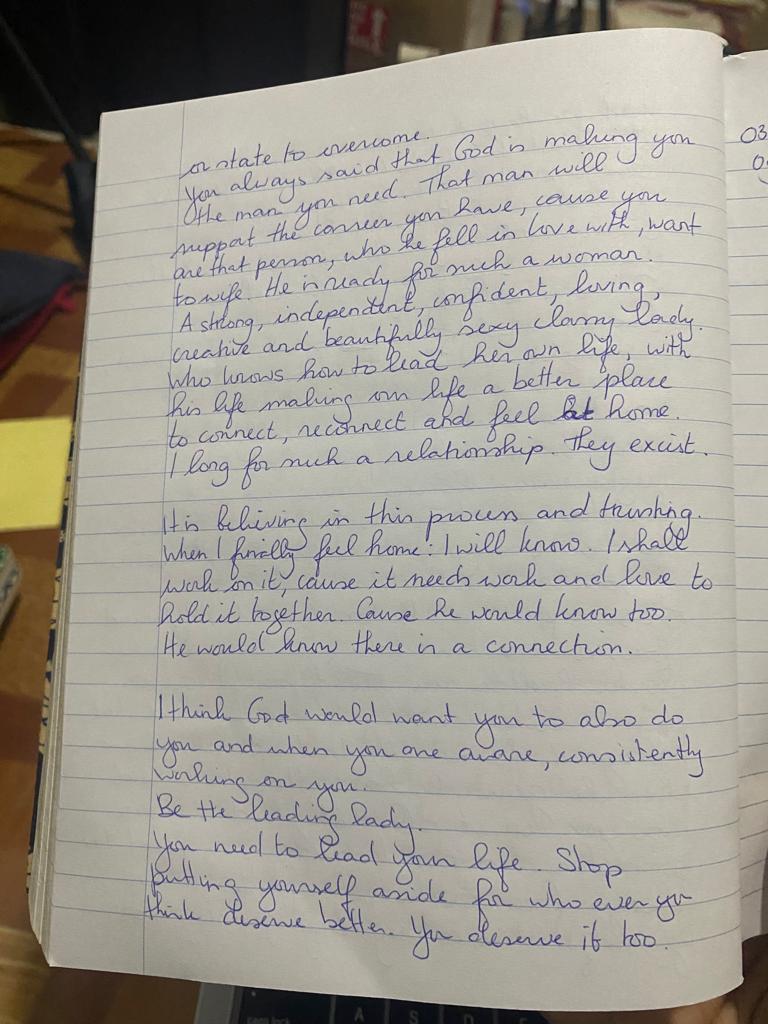 or state to overcome.
You always said that God is making you
the man you need. That man will
support the career you have, cause you
are that person, who he fell in love with, want
to wife. He is ready for such a woman.
A strong, independent, confident, loving,
creative and beautifully sexy classy lady.
Who knows how to lead her own life, with
his life making our life a better place
to connect, reconnect and feel at home.
I long for such a relationship. They excist.
It is believing in this process and trusting.
When I finally feel home: I will know. I shall
work on it, cause it needs work and love to
hold it together. Cause he would know too.
He would know there is a connection.
I think God would want you to also do
you and when you are aware, consistently
working on you.
Be the leading lady.
You need to lead your life. Stop
putting yourself aside for who ever you
think deserve better. You deserve it too.
03
0
caps lock
A
S
D